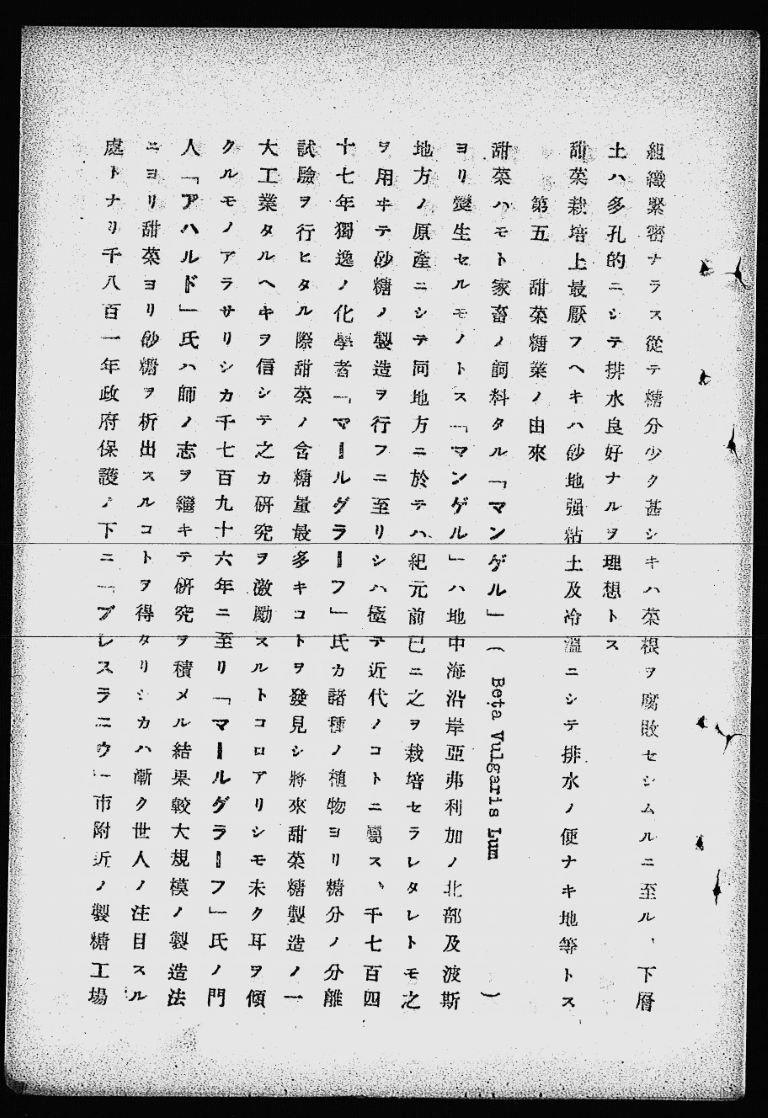 組織緊密ナラス從テ糖分少ク甚シキハ菜根ヲ腐敗セシムルニ至ル、下層
土ハ多孔的ニシテ排水良好ナルヲ理想トス
甜菜栽培上最厭フヘキハ砂地强粘土及冷溫ニシテ排水ノ便ナキ地等トス
第五 甜菜糖業ノ由來
甜菜ハモト家畜ノ飼料タル「マンゲル」( Beta Vulgaris Lum )
ヨリ變生セルモノトス「マンゲル」ハ地中海沿岸亞弗利加ノ北部及波斯
地方ノ原產ニシテ同地方ニ於テハ紀元前已ニ之ヲ栽培セラレタレトモ之
ヲ用ヰテ砂糖ノ製造ヲ行フニ至リシハ極テ近代ノコトニ屬ス、千七百四
十七年獨逸ノ化學者「マールグラーフ」氏カ諸種ノ植物ヨリ糖分ノ分離
試驗ヲ行ヒタル際甜菜ノ含糖量最多キコトヲ發見シ將來甜菜糖製造ノ一
大工業タルヘキヲ信シテ之カ硏究ヲ激勵スルトコロアリシモ未ク耳ヲ傾
クルモノアラサリシカ千七百九十六年ニ至リ「マールグラーフ」氏ノ門
人「アハルド」氏ハ師ノ志ヲ繼キテ硏究ヲ積メル結果較大規模ノ製造法
ニヨリ甜菜ヨリ砂糖ヲ析出スルコトヲ得タリシカハ漸ク世人ノ注目スル
處トナリ千八百一年政府保護ノ下ニ「ブレスラニウ」市附近ノ製糖工場